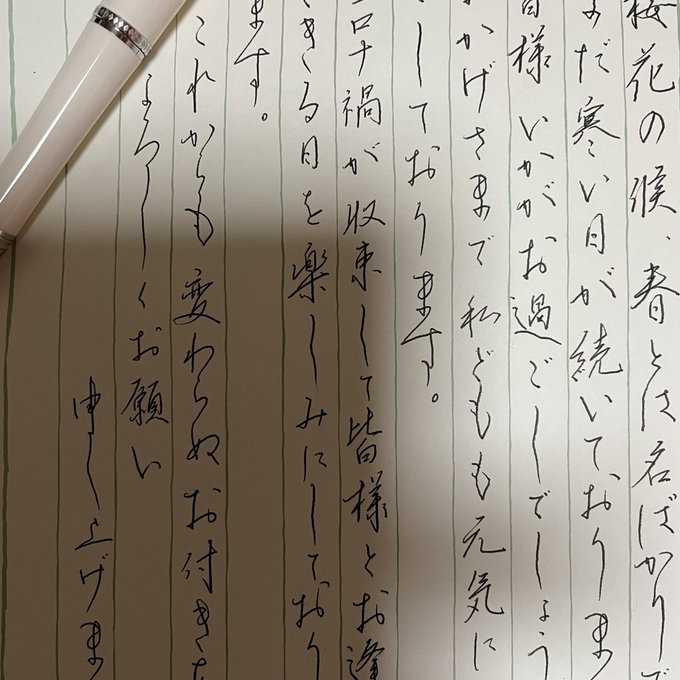 梅花の候、春とは名ばかりで
まだ寒い日が続いておりま
皆様いかがお過ごしでしょう
おかげさまで私どもも元気に
しております。
コロナ禍が収束して皆様とお逢
できる日を楽しみにしており
ます。
これからも変わらぬお付きあ
よろしくお願い
申し上げま